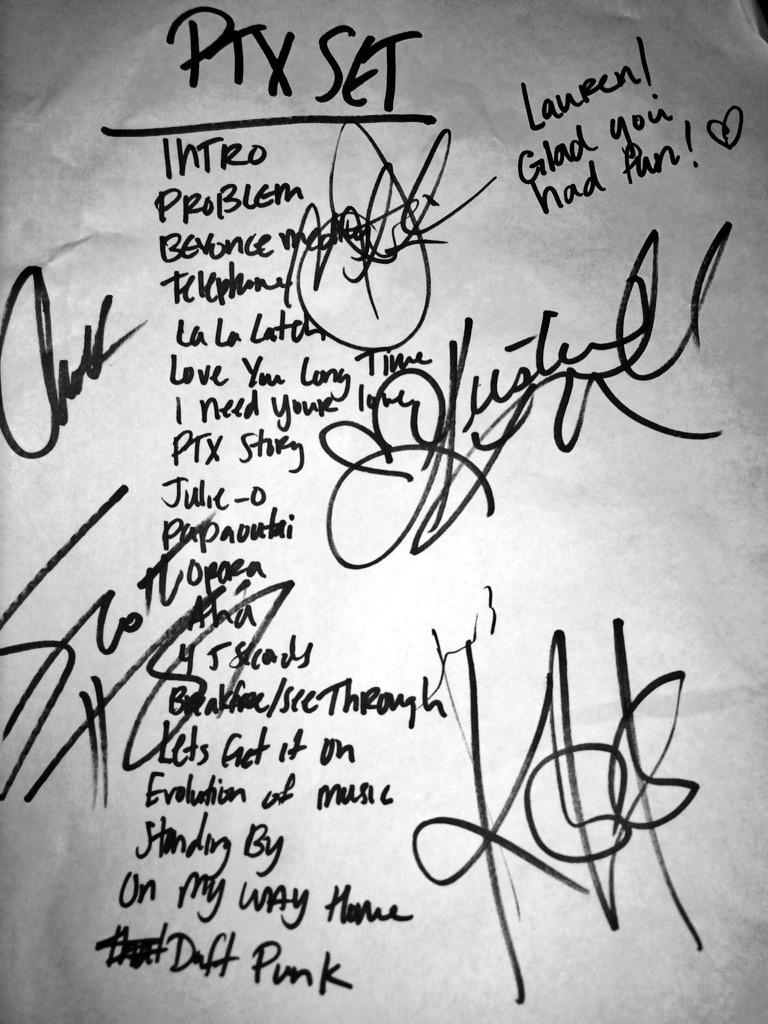 PTX SET
Lauren!
Glad you
had fun! ♡
INTRO
PROBLEM
BEYONCE medley
Telephone
La La Latch
Love You Long Time
I need your love
PTX Story
Julie-o
Papaoutai
Opara
Aha
45 seconds
Breakfree/see Through
Lets Get it on
Evolution of music
Standing By
On My WAY Home
Daft Punk
Scott
Kirstin